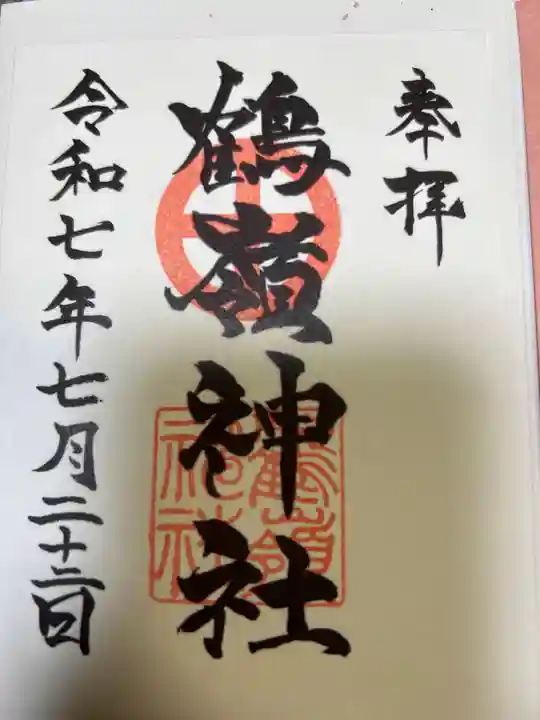 奉拝
鶴嶺神社
令和七年七月二十三日
鶴嶺
神社